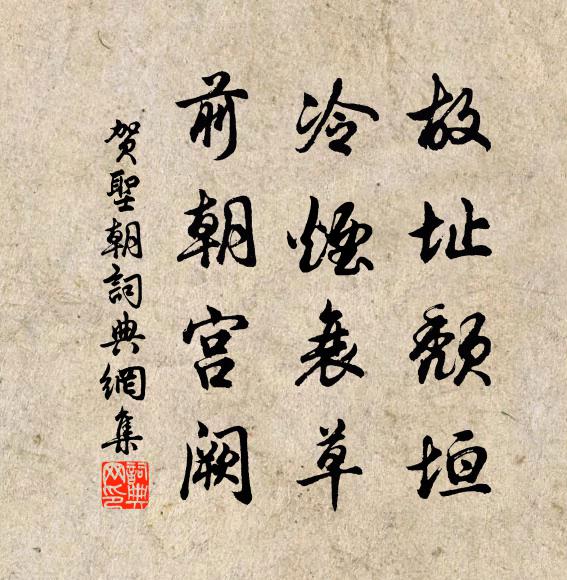 故址颓垣
冷煙衰草
前朝宫阙
贺聖朝詞典網集
詞典网印